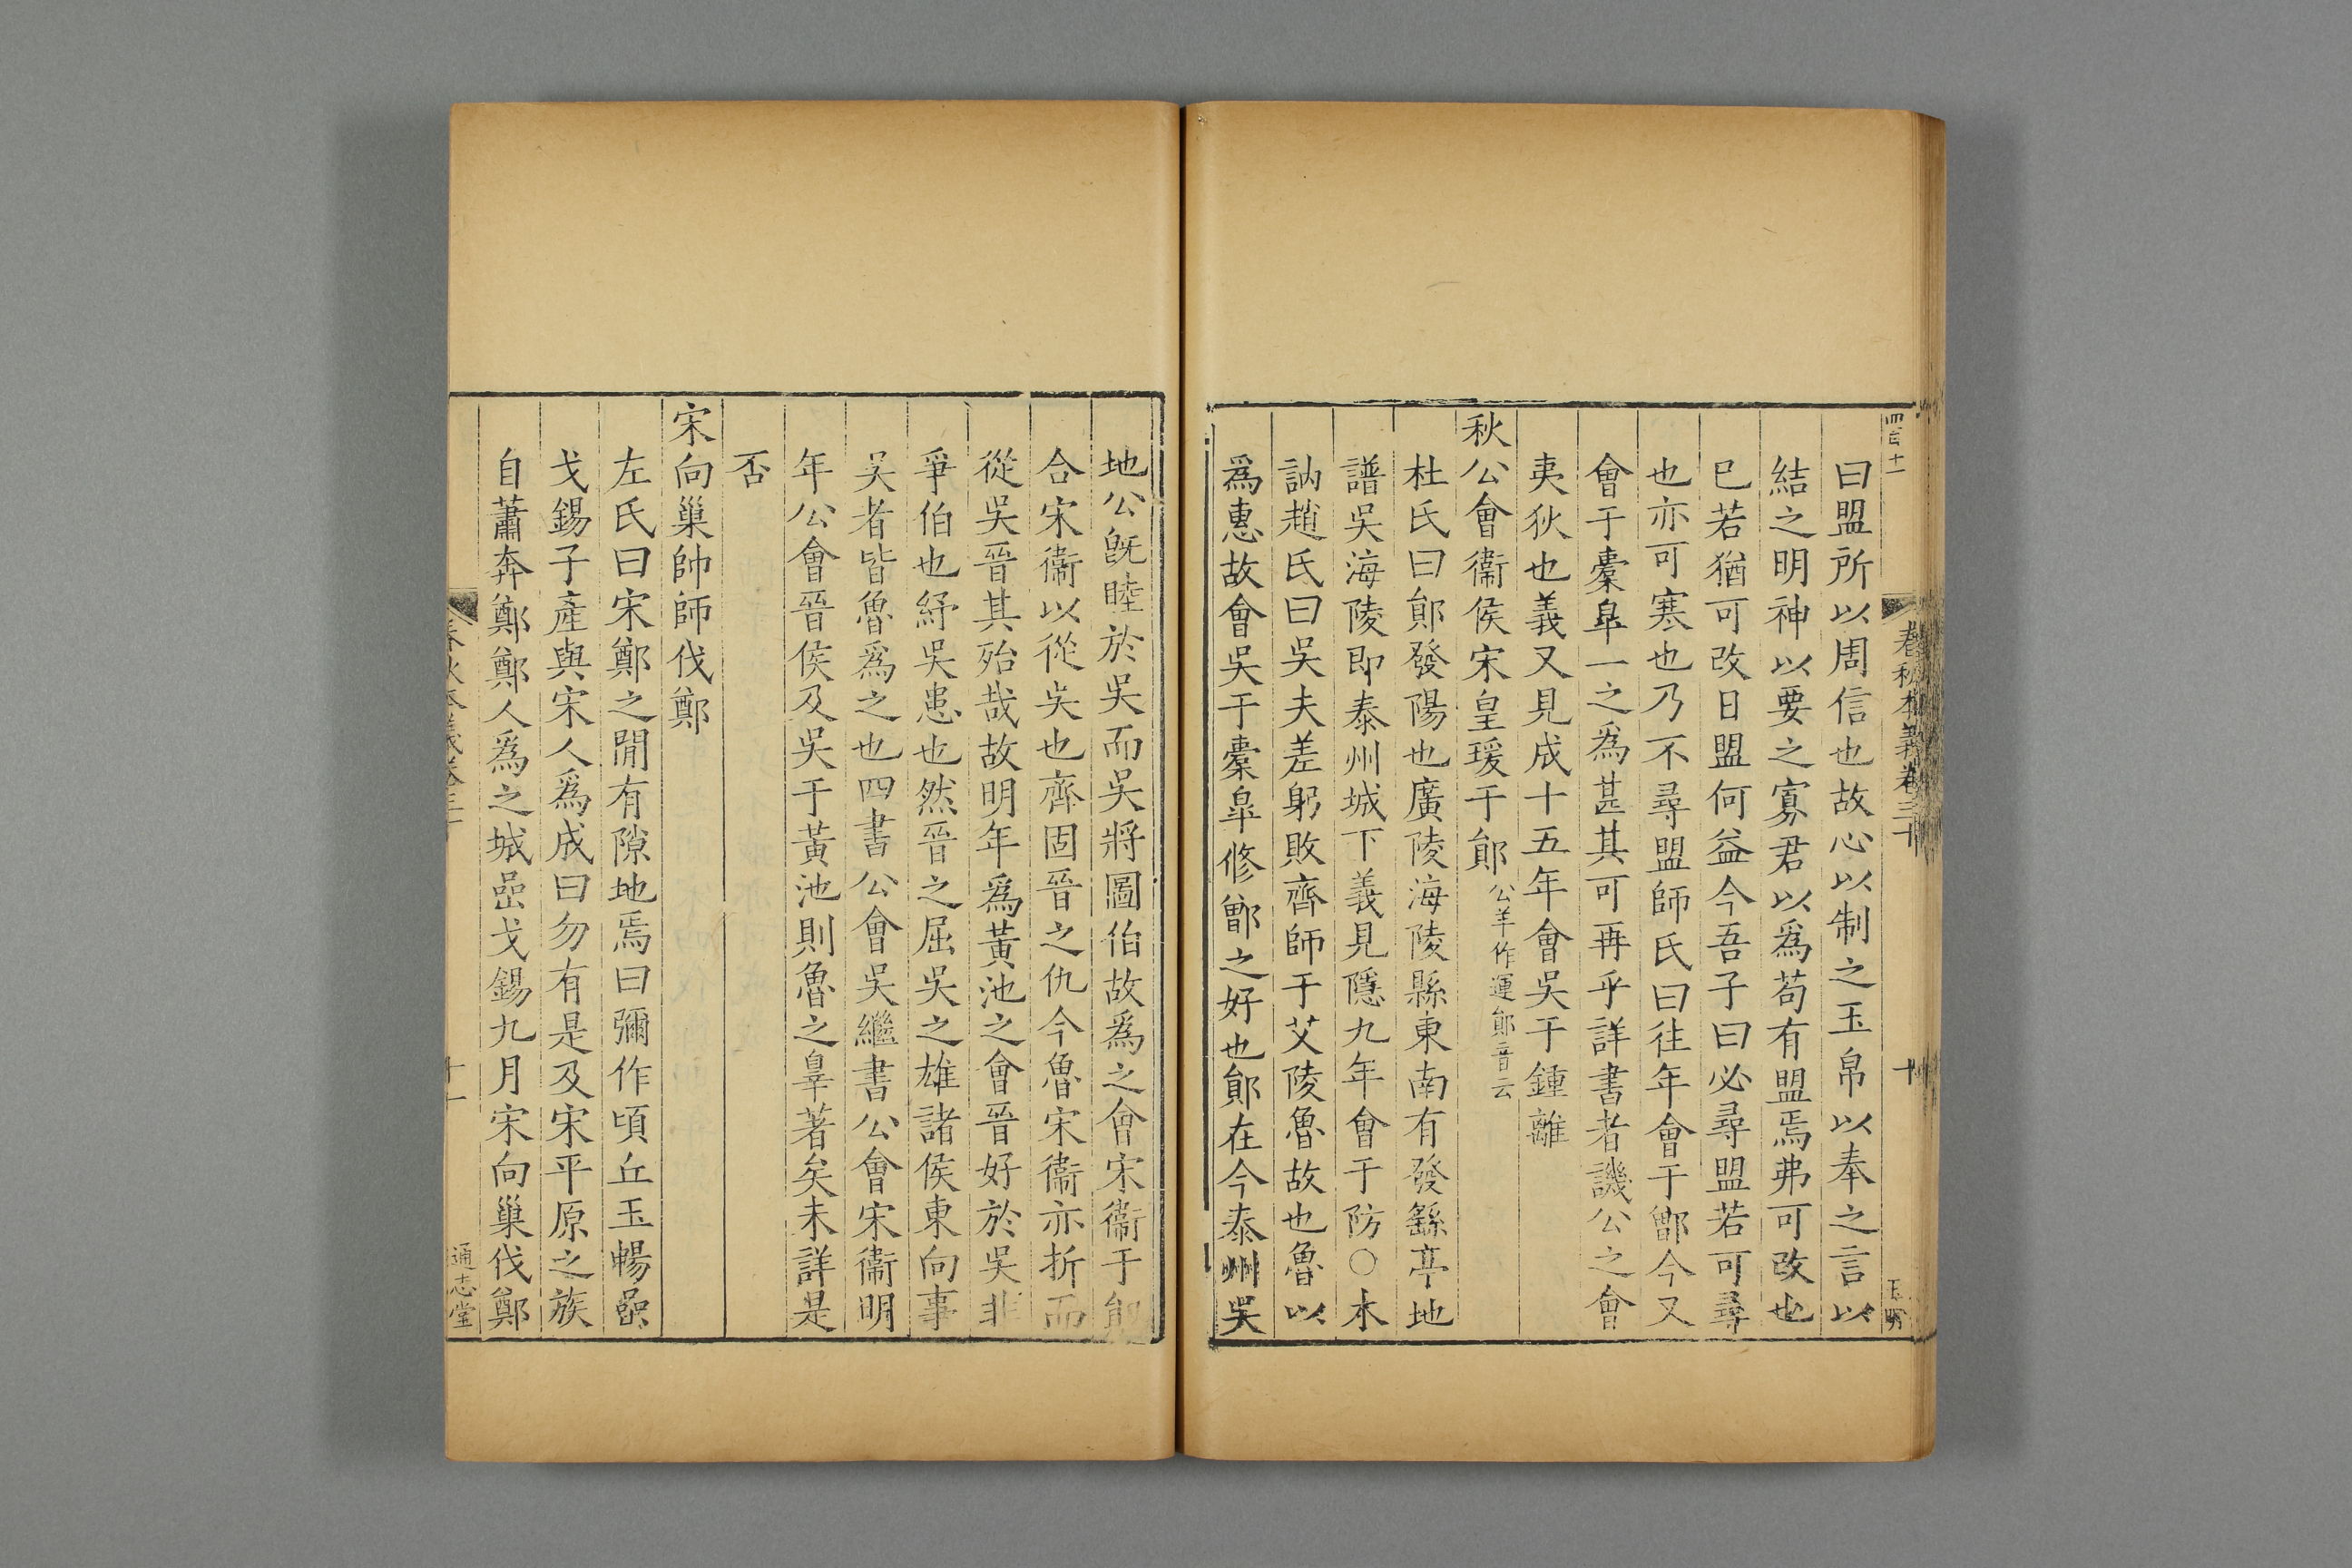 四百十
春秋本義卷三十
十
曰盟所以周信也故心以制之玉帛以奉之言以
結之明神以要之寡君以爲苟有盟焉弗可改也
已若猶可改日盟何益今吾子曰必尋盟若可尋
也亦可寒也乃不尋盟師氏曰往年會于鄫今又
會于橐皐一之爲甚其可再乎詳書者譏公之會
夷狄也義又見成十五年會吳于鍾離
秋公會衞侯宋皇瑗于鄖公羊作運鄖音云
杜氏曰鄖發陽也廣陵海陵縣東南有發繇亭地
譜吳海陵即泰州城下義見隱九年會于防○木
訥趙氏曰吳夫差躬敗齊師于艾陵魯故也魯以
爲惠故會吳于橐皐修鄫之好也鄖在今泰州吳
地公旣睦於吳而吳將圖伯故爲之會宋衞于鄖
合宋衞以從吳也齊固晉之仇今魯宋衞亦折而
從吳晉其殆哉故明年爲黃池之會晉好於吳非
爭伯也紓吳患也然晉之屈吳之雄諸侯東向事
吳者皆魯爲之也四書公會吳繼書公會宋衞明
年公會晉侯及吳于黃池則魯之辠著矣未詳是
否
宋向巢帥師伐鄭
左氏曰宋鄭之閒有隙地焉曰彌作頃丘玉暢嵒
戈錫子產與宋人爲成曰勿有是及宋平原之族
自蕭奔鄭鄭人爲之城嵒戈錫九月宋向巢伐鄭
春秋本義卷三十
十一
通志堂